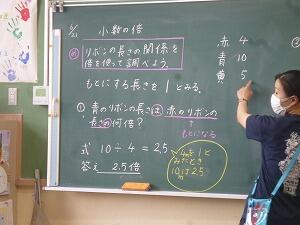 6/21
小数の倍
め リボンの長さの関係を
倍を使って調べよう。
もとにする長さを1とみる。
① 青のリボンの長さは赤のリボンの
長さの何倍?
もとになる
式 10÷4=2.5
答え 2.5倍
4mを1と
みたとき
10mは2.5
赤 4
青 10
黄 5